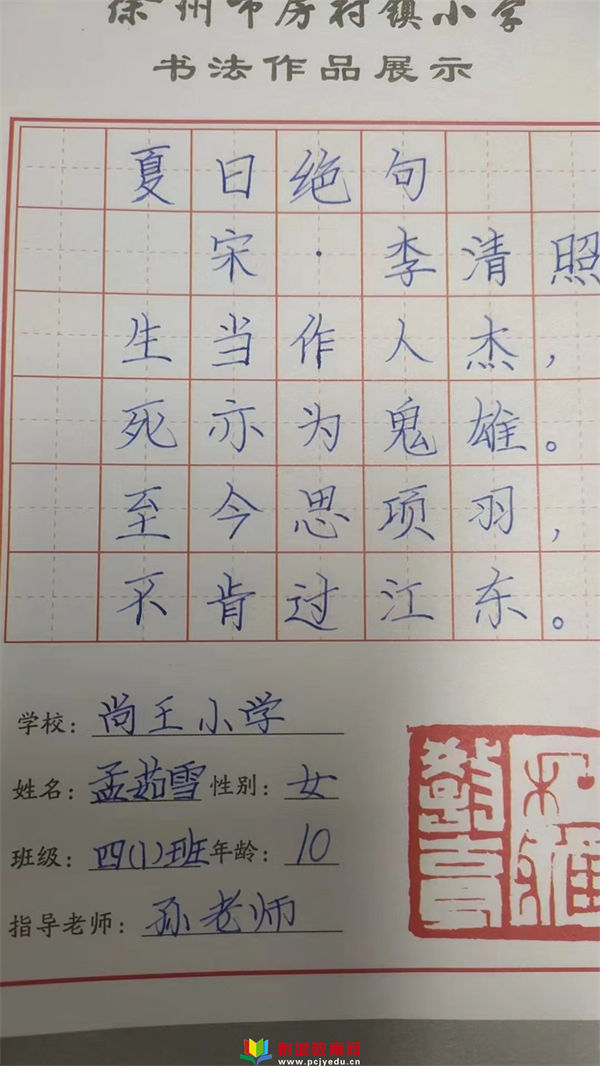 徐州市房村镇小学
书法作品展示
夏日绝句
宋·李清照
生当作人杰，
死亦为鬼雄。
至今思项羽，
不肯过江东。
学校：尚王小学
姓名：孟茹雪 性别：女
班级：四(1)班 年龄：10
指导老师：孙老师
彭城教育网
www.pcjyedu.cn